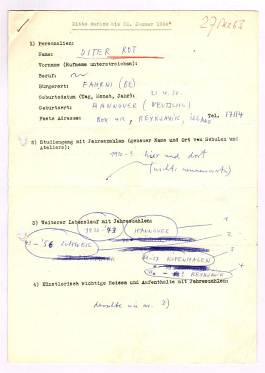 Bitte retour bis 20. Januar 1964
27 Dez 63
1) Personalien:
Name: DITER ROT
Vorname (Rufname unterstreichen):
Beruf:
Bürgerort: FAHRNI (BE)
Geburtsdatum (Tag, Monat, Jahr): 21. 4. 30
Geburtsort: HANNOVER (DEUTSCHL)
Feste Adresse: BOX 412, REYKJAVIK, ISLAND Tel. 17114
2) Studiengang mit Jahreszahlen (genauer Name und Ort von Schulen und Ateliers):
hier und dort
(nichts nennenswertes)
3) Weiterer Lebenslauf mit Jahreszahlen:
1930-43 HANNOVER 1
-'56 SCHWEIZ 2
-57 KOPENHAGEN 3
REYKJAVIK 4
4) Künstlerisch wichtige Reisen und Aufenthalte mit Jahreszahlen:
dasselbe wie nr. 3)